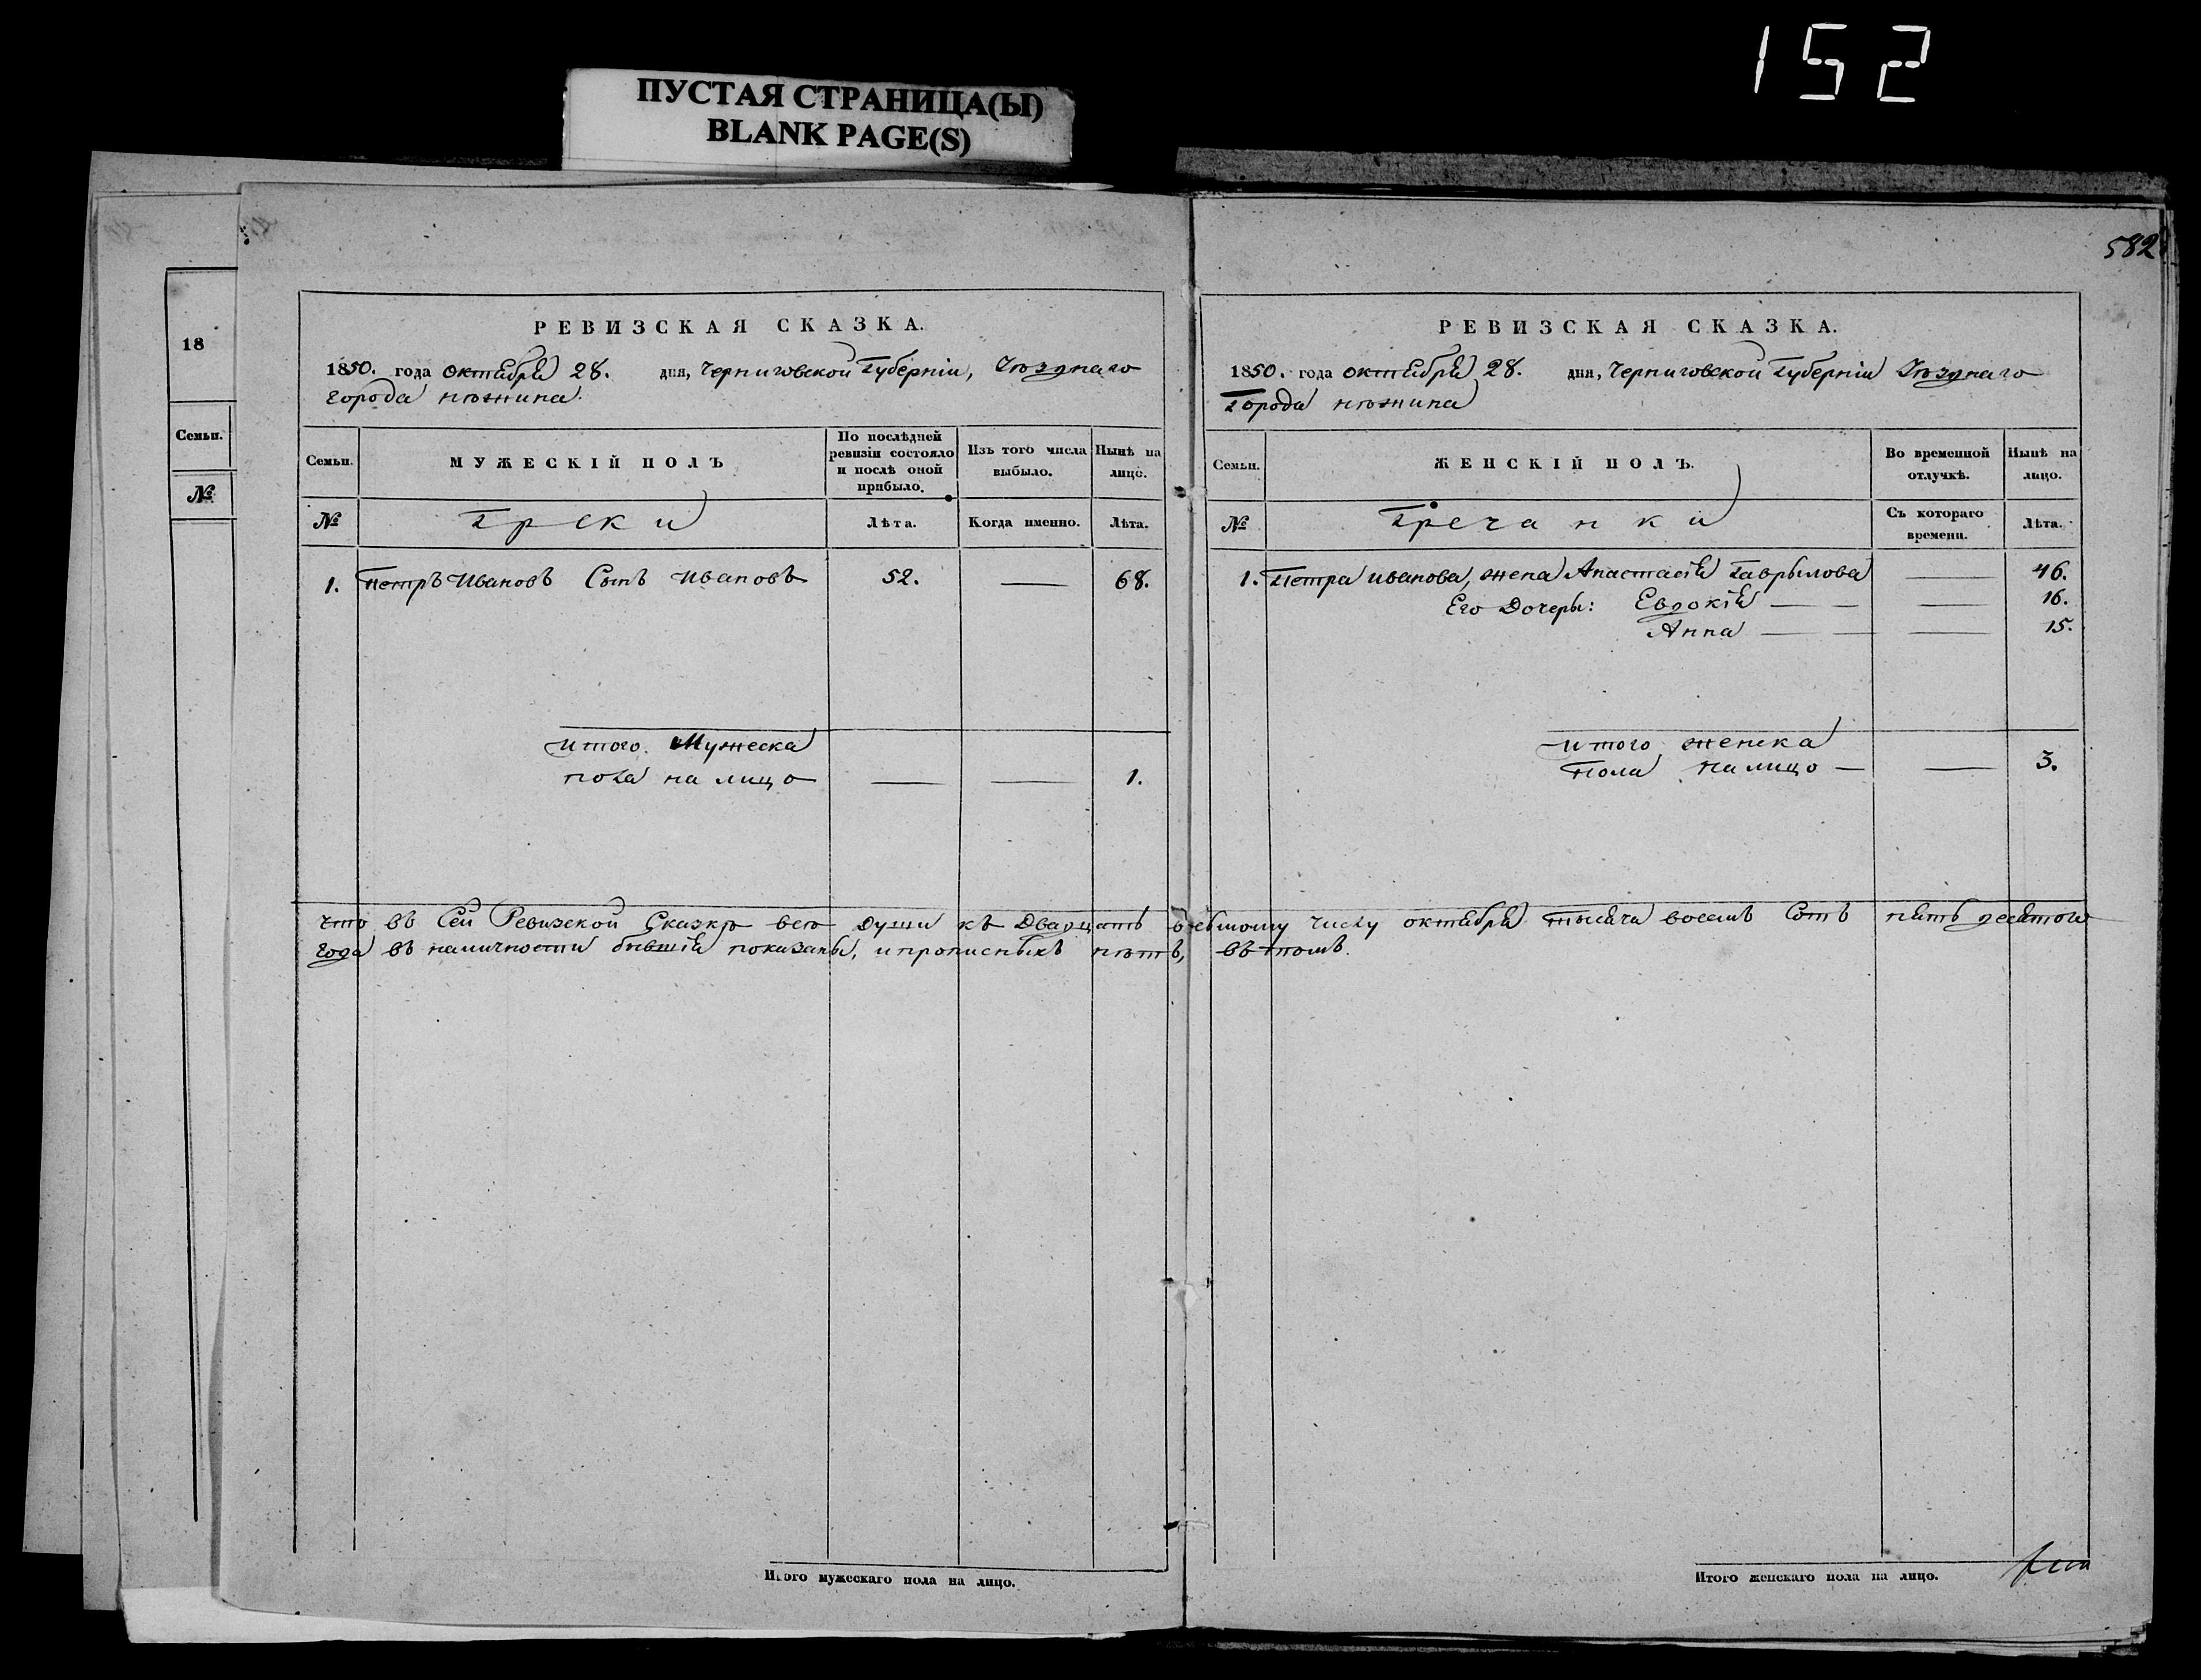 152
ПУСТАЯ СТРАНИЦА(Ы)
BLANK PAGE(S)
582
18
Семьи.
№
РЕВИЗСКАЯ СКАЗКА.
1850. года октября 28. дня, Черниговской Губерніи, Уѣзднаго
города нѣжина.
Семьи.
МУЖЕСКІЙ ПОЛЪ
По послѣдней ревизіи состояло и послѣ оной прибыло.
Изъ того числа выбыло.
Нынѣ на лицо.
№
Греки
Лѣта.
Когда именно.
Лѣта.
1. Петръ Ивановъ Сынъ Ивановъ 52. — 68.
итого Мужеска
пола на лицо — — 1.
РЕВИЗСКАЯ СКАЗКА.
1850. года октября 28. дня, Черниговской Губерніи Уѣзднаго
Города нѣжина
Семьи.
ЖЕНСКІЙ ПОЛЪ.
Во временной отлучкѣ.
Нынѣ на лицо.
№
Гречанки
Съ котораго времени.
Лѣта.
1. Петра иванова, жена Анастасія Гаврылова — 46.
Его Дочеры: Евдокія — — 16.
Анна — — 15.
итого женска
пола на лицо — — 3.
что въ Сей Ревизской Сказкѣ всѣ души къ Двадцать осьмому числу октября тысяча восемъ Сотъ пять десятого
года въ наличности бывшія показаны, и прописныхъ нѣтъ, въ томъ.
Итого мужескаго пола на лицо.
Итого женскаго пола на лицо.